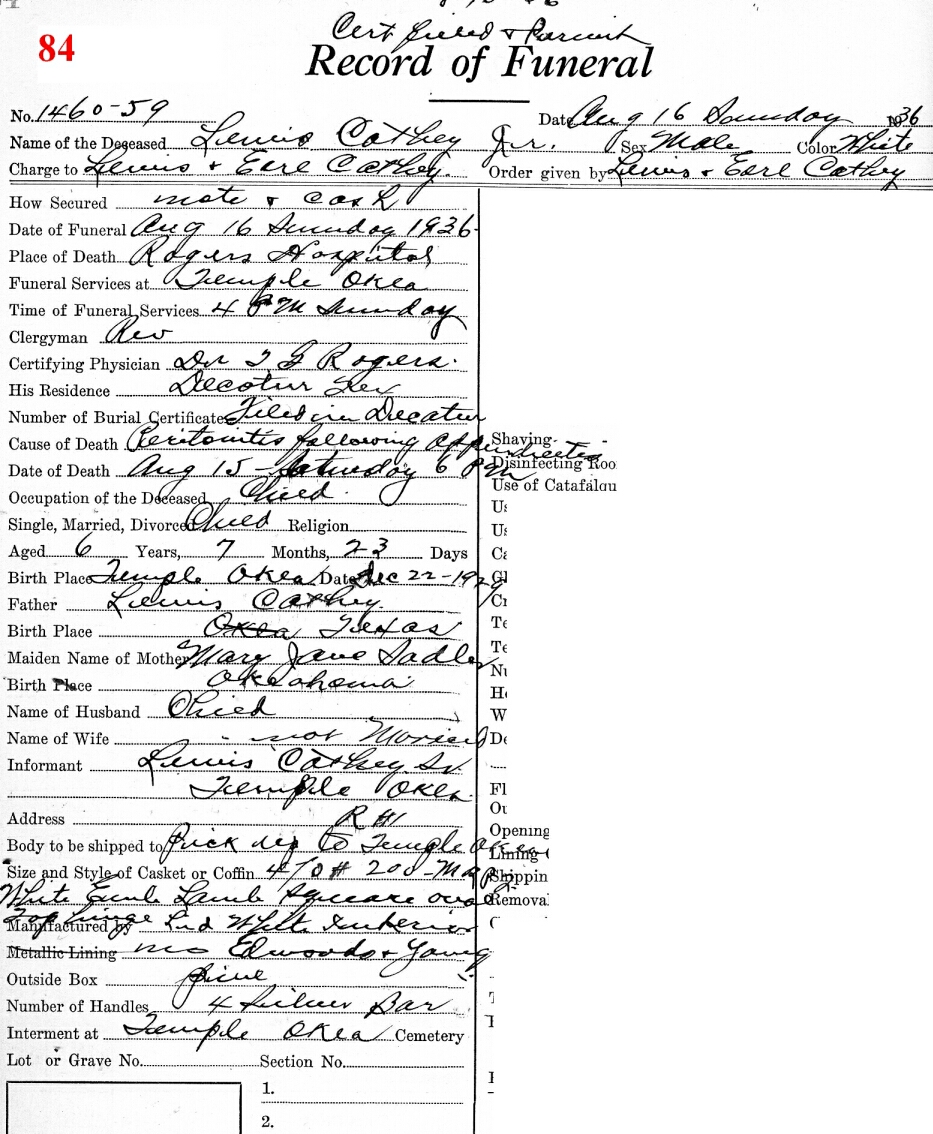 84
Cert filed & Permit
Record of Funeral
No. 1460-59 Date Aug 16 Sunday 1936
Name of the Deceased Lewis Cathey Jr. Sex Male Color White
Charge to Lewis & Earl Cathey. Order given by Lewis & Earl Cathey
How Secured note & cash
Date of Funeral Aug 16 Sunday 1936
Place of Death Rogers Hospital
Funeral Services at Temple Okla
Time of Funeral Services 4 PM Sunday
Clergyman Rev
Certifying Physician Dr T G Rogers.
His Residence Decatur Tex
Number of Burial Certificate Filed in Decatur
Cause of Death Peritonitis following appendicitis
Shaving
Date of Death Aug 15 - Saturday 6 PM
Disinfecting Roo
Occupation of the Deceased Child
Use of Catafalqu
Single, Married, Divorced Child Religion
Aged 6 Years, 7 Months, 23 Days
Birth Place Temple Okla Date Dec 22-1929
Father Lewis Cathey.
Birth Place Okla Texas
Maiden Name of Mother Mary Jane Sadler
Birth Place Oklahoma
Name of Husband Child
Name of Wife - not Married
Informant Lewis Cathey Sr.
Temple Okla.
Address R #1
Opening
Body to be shipped to Pick up to Temple Okla
Lining
Size and Style of Casket or Coffin 4/0 # 200-M
Shippin
White Lamb square
Removal
Top hinge Lid White Interior
Manufactured by
Metallic Lining no Edwards & Young
Outside Box pine
Number of Handles 4 Silver Bar
Interment at Temple Okla Cemetery
Lot or Grave No. Section No.
1.
2.